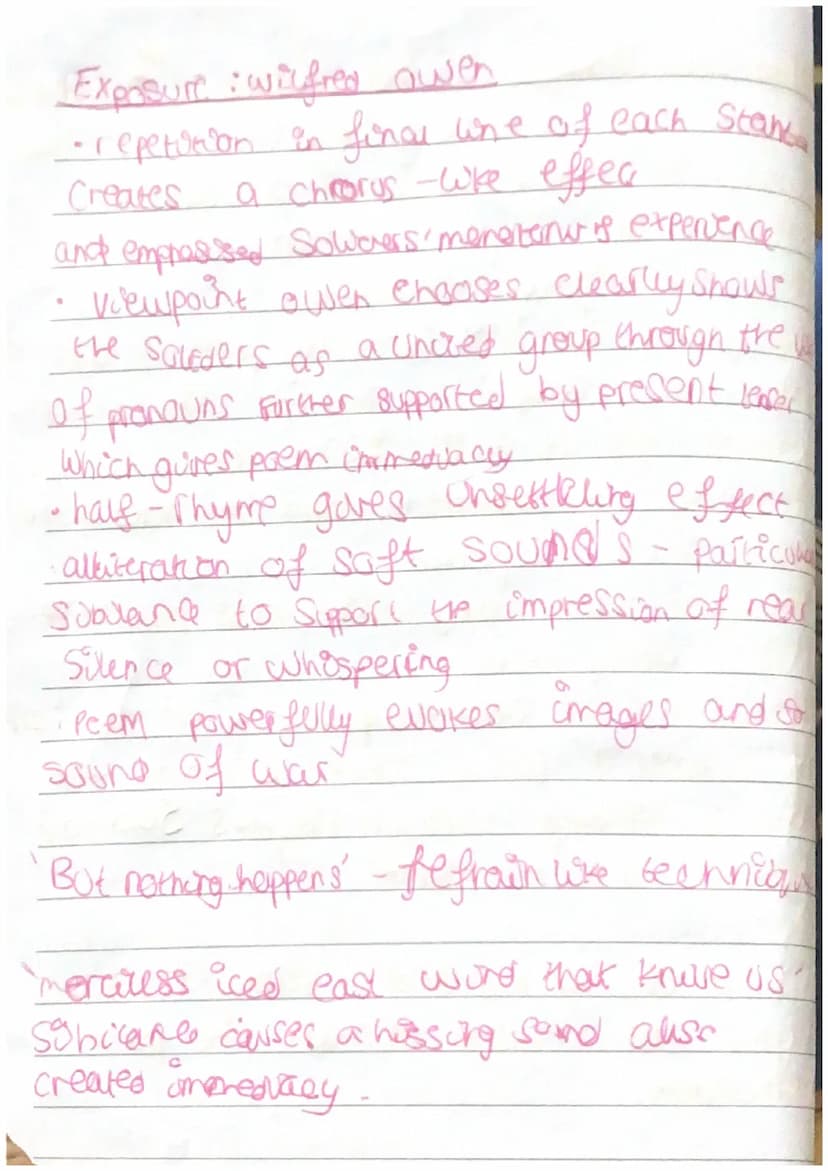 Exposure : wilfred owen
• repetition in final line of each Stan
Creates a chorus -like effec
and emphassed Soldiers' monotonus experience
• viewpoint owen chooses clearly shows
the Soldiers as a united group through the
of pronouns further supported by present tense
which gives poem immediacy
• half-rhyme gives unsettling effect
• alliteration of soft sounds - particul
Sibilance to support the impression of near
Silence or whispering
• Poem powerfully evokes images and so
sound of war
'But nothing happens' - refrain like techniqu
'merciless iced east wind that knive us'
Sibilance causes a hissing sound also
created immediacy.